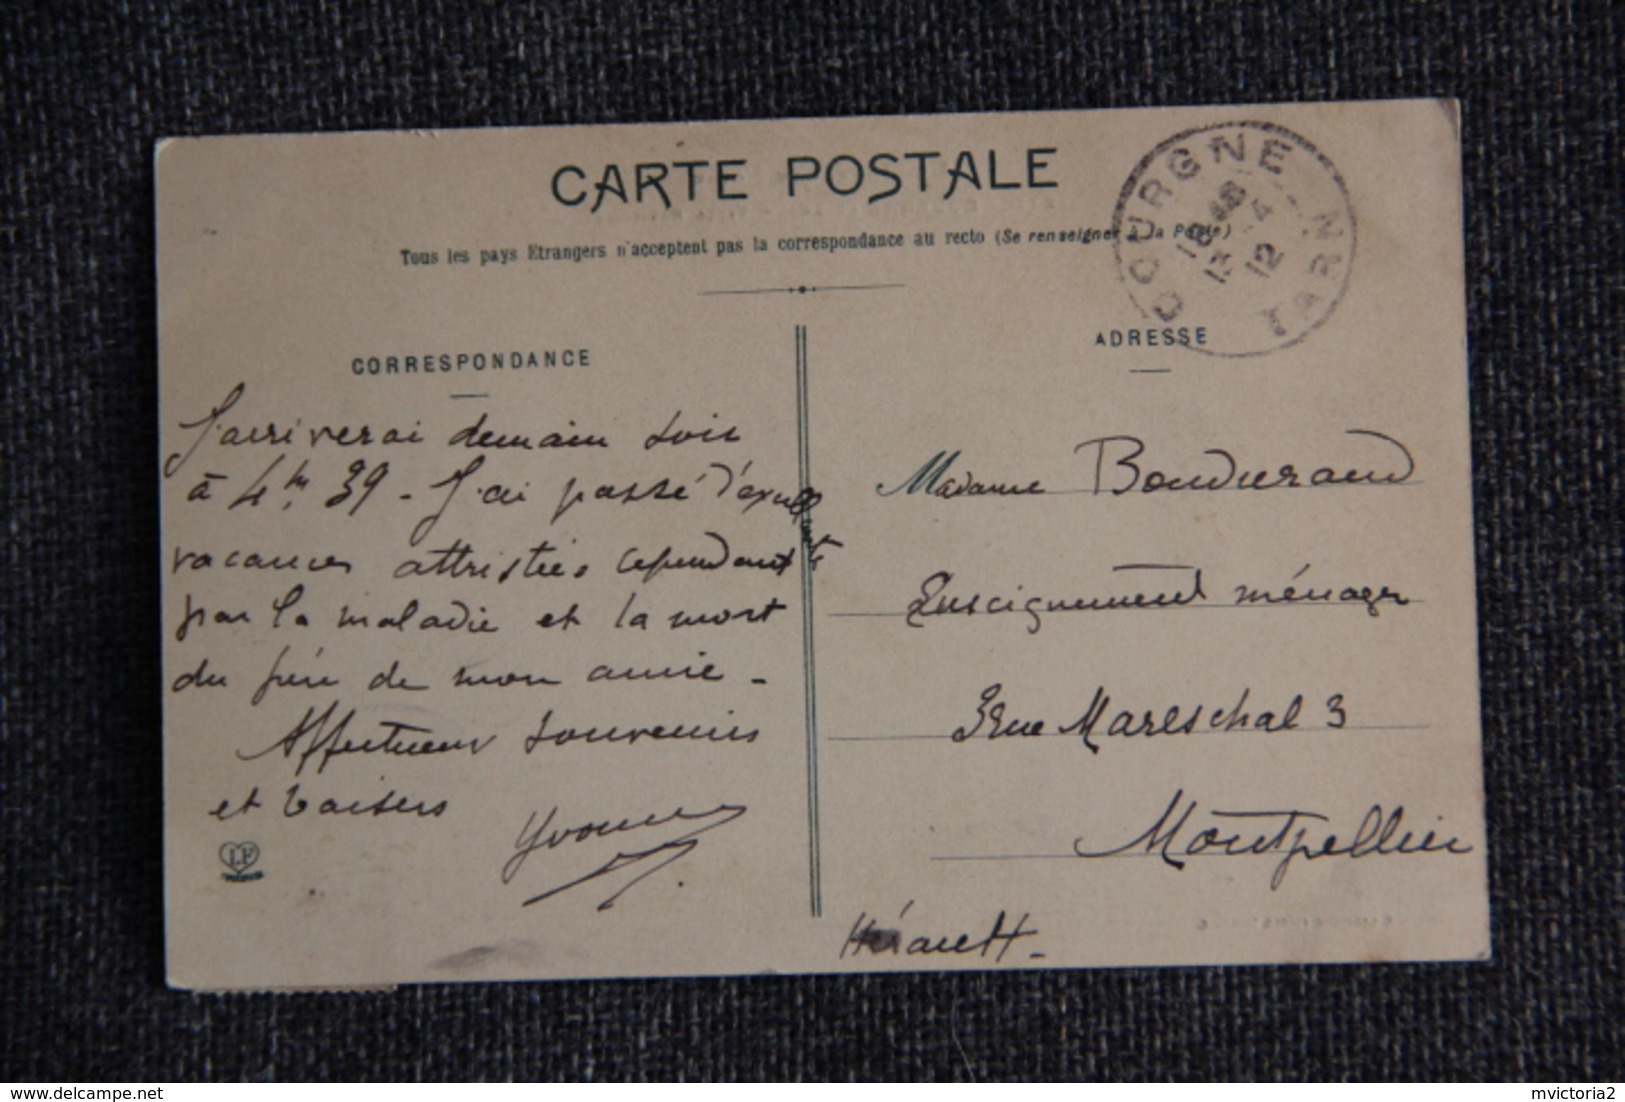 CARTE POSTALE
Tous les pays Etrangers n'acceptent pas la correspondance au recto (Se renseigner à la Poste)
DOURGNE
TARN
12
CORRESPONDANCE
J'arriverai demain soir
à 4h 39 - J'ai passé d'excellentes
vacances attristées cependant
par la maladie et la mort
du père de mon amie -
Affectueux souvenirs
et baisers
Yvonne
LF
ADRESSE
Madame Bonduraud
Enseignement ménager
3 Rue Mareschal 3
Montpellier
Hérault -
delcampe.net
mvictoria2